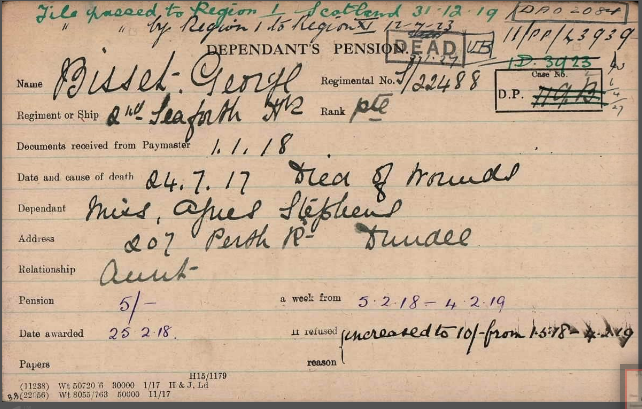 File passed to Region 1 Scotland 31·12·19 DPO 2084
" " by Region 1 to Region XI 12·7·23
DEPENDANT'S PENSION. DEAD 11/DP/L3939
Name Bisset George Regimental No. S/22488 1D. 3923
Regiment or Ship 2nd Seaforth Hrs Rank pte Case No. D.P.
Documents received from Paymaster 1.1.18
Date and cause of death 24.7.17 Died of Wounds
Dependant Miss, Agnes Stephens
Address 207 Perth Rd Dundee
Relationship Aunt
Pension 5/- a week from 5·2·18 – 4·2·19
Date awarded 25 2·18. If refused increased to 10/- from 1·5·18 – 4·2·19
Papers reason
H15/1179
(11238) Wt 50720 6 30000 1/17 H & J, Ld
(22656) Wt 8055/763 50000 11/17